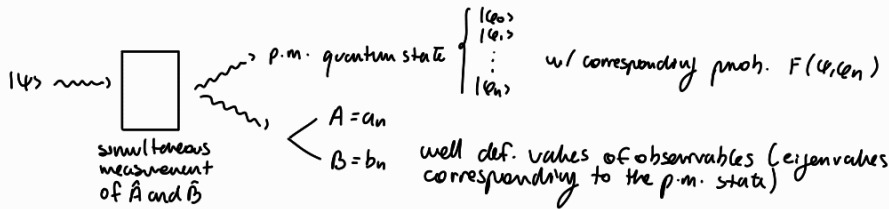 |ψ>
simultaneous
measurement
of Â and B̂
p.m. quantum state
|φ₀>
|φ₁>
⋮
|φₙ>
w/ corresponding prob. F(ψ,φₙ)
A = aₙ
B = bₙ
well def. values of observables (eigenvalues
corresponding to the p.m. state)